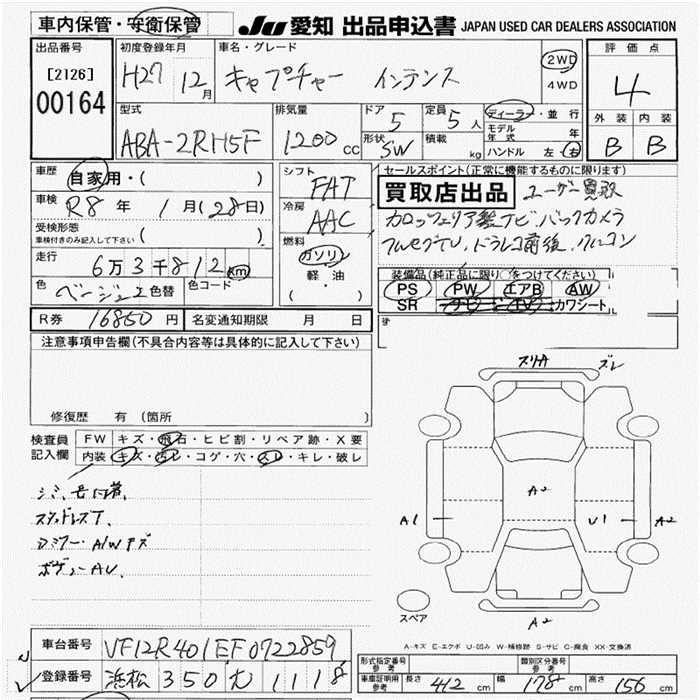 車内保管・安衛保管
JU 愛知 出品申込書 JAPAN USED CAR DEALERS ASSOCIATION
出品番号
[2126]
00164
初度登録年月
H27 12月
車名・グレード
キャプチャー インテンス
2WD
4WD
評価点
4
外装 内装
B B
型式
ABA-2RH5F
排気量
1200 cc
ドア
5
形状
SW
定員
5 人
積載
kg
ディーラー・並行
モデル年式 年
ハンドル 左・右
車歴
自家用・( )
車検
R8 年 1月(28日)
受検形態
車検付きのみ記入して下さい ( )
走行
6万3千812 km
色
ベージュ2 色替
色コード
シフト
FAT
冷房
AAC
燃料
ガソリン
軽油
( ・ )
セールスポイント(正常に機能するものに限ります)
買取店出品 ユーザー買取
カロッツェリア製ナビ、バックカメラ
フルセグTV、ドラレコ前後、
装備品(純正品に限り○をつけてください)
PS PW エアB AW
SR ナビ TV カワシート
R券 16850 円
名変通知期限 月 日
注意事項申告欄(不具合内容等は具体的に記入して下さい)
修復歴 有(箇所
検査員
記入欄
FW キズ・飛石・ヒビ割・リペア跡・X要
内装 キズ・汚レ・コゲ・穴・スレ・キレ・破レ
スタッドレスT、
ボディーAU、
スリA
ズレ
A2
A1
U1
A2
A2
スペア
A-キズ E-エクボ U-凹み W-補修跡 S-サビ C-腐食 XX-交換済
車台番号
VF12R401EF0722859
登録番号
浜松 350 1118
形式指定番号
参考
類別区分番号
参考
車庫証明用
参考
長さ 412 cm
幅 178 cm
高さ 156 cm